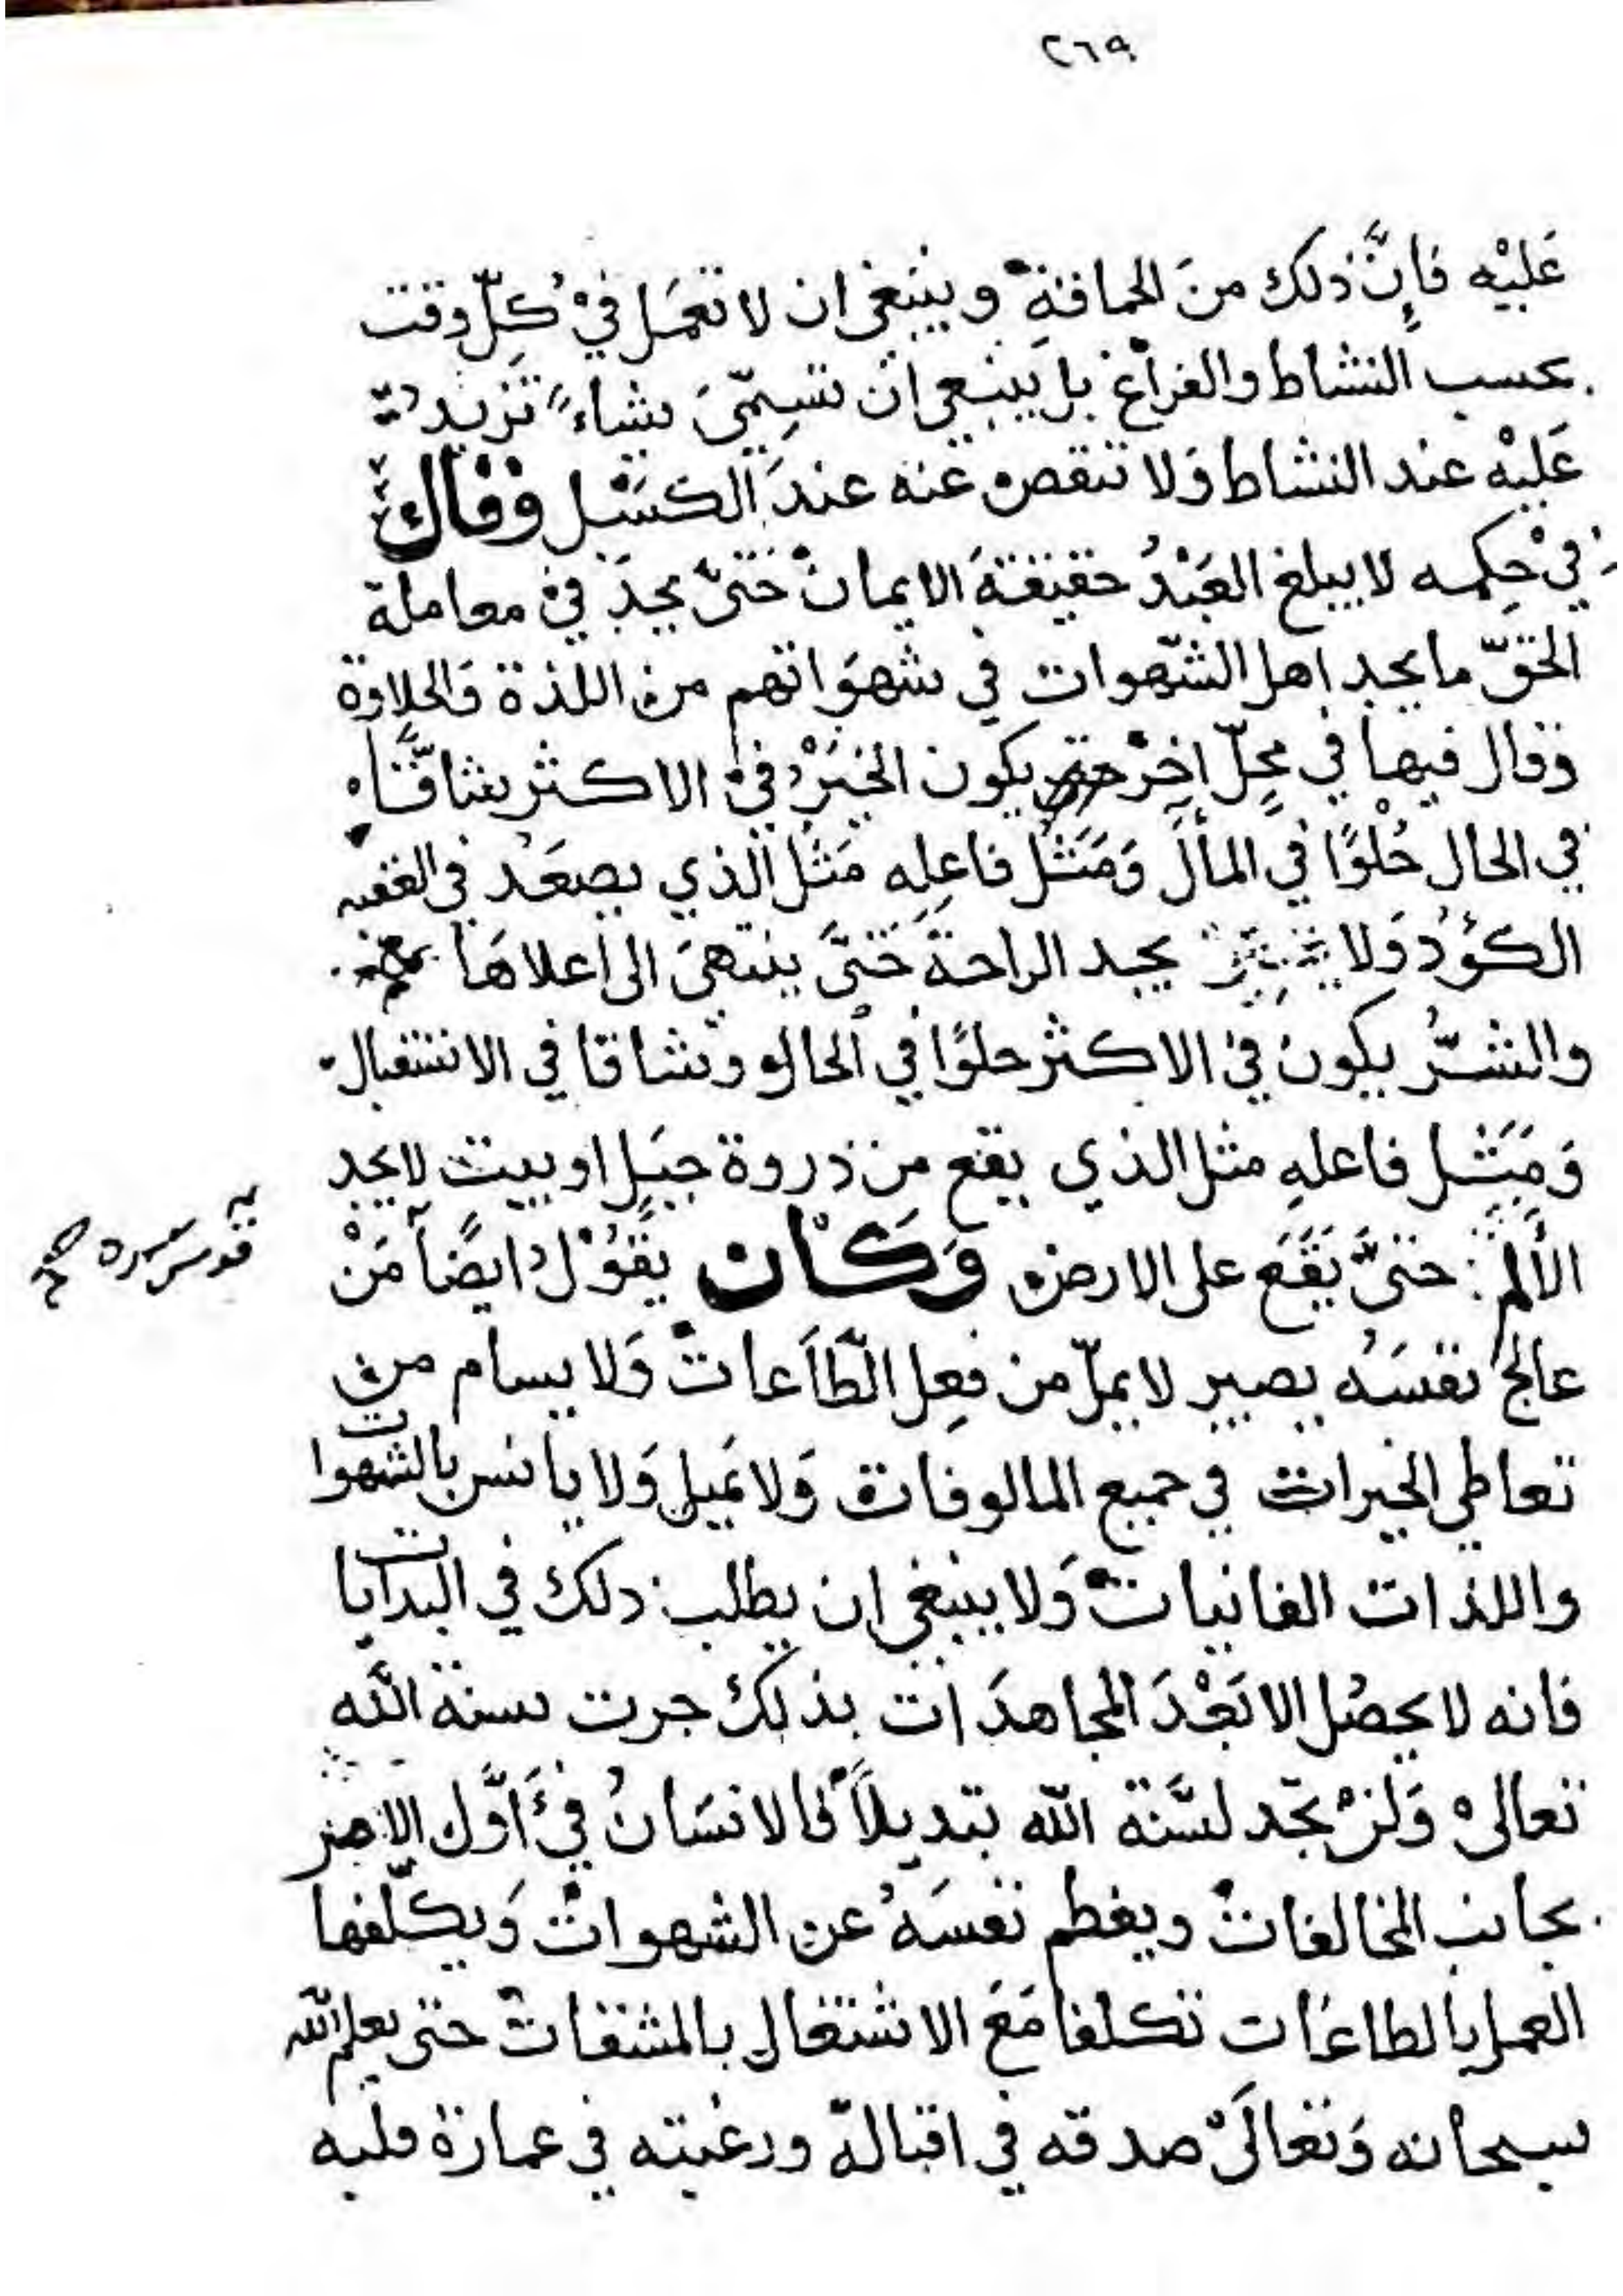 ٢٦٩
عَليْه فَاِنَّ ذلك منَ الحماقةِ وينبغي ان لا تعمَل فيْ كلّ وقت
بحسب النشاط والفراغ بل ينبغي ان تسمّيَ شاءً تزيد
عَليْه عند النشاط وَلا تنقص عنه عندَ الكسَل وَقَال
فيْ حِكمه لا يبلغ العَبْدُ حقيقةَ الايمان حَتىَّ يجدَ فيْ معاملة
الحقّ ما يجد اهل الشّهوات في شهوَاتهم من اللذة وَالحلاوة
وَقال فيها في محلّ اخرْ يكون الخيَرْ فيْ الاكثر شاقَّا
في الحال حُلوًا في المأل وَمَثَل فاعِلِه مَثَل الذي يصعَد في العقبه
الكؤد وَلا يجد الراحةَ حَتىَّ ينتهيَ الى اعلاهَا
والشرُّ يكون فيْ الاكثر حلوًا في الحال وشاقا في الاستقبال
وَمَثَل فاعلهِ مثل الذي يقع من ذروة جبَل او بيت لا يجد
الأَلم حتىَّ يَقَعَ على الارض وَكَان يقَوُل ايضًا مَنْ
قدس سره صح
عالج نفسَهُ يصير لا يملّ من فعِل الطَّاعات وَلا يسام من
تعاطي الخيرات في جميع المالوفات وَلا يَميل وَلا يانس بالشهوات
واللذات الفانيات وَلا ينبغي ان يطلب ذلك في البدايات
فانه لا يحصُل الا بَعْدَ المجاهدَات بذلك جرت سنة الله
تعالىْ وَلنْ تجد لسَّنة الله تبديلاً فالانسَانُ فيْ أوَّل الامر
يجانب المخالفات ويفطم نفسَهُ عن الشهوات وَيكلّفها
العمل بالطاعَات تكلفا مَعَ الاشتغال بالمشقات حتى يعلم الله
سبحانه وَتعالىَ صدقه في اقباله ورغبته في عمارة قلبه